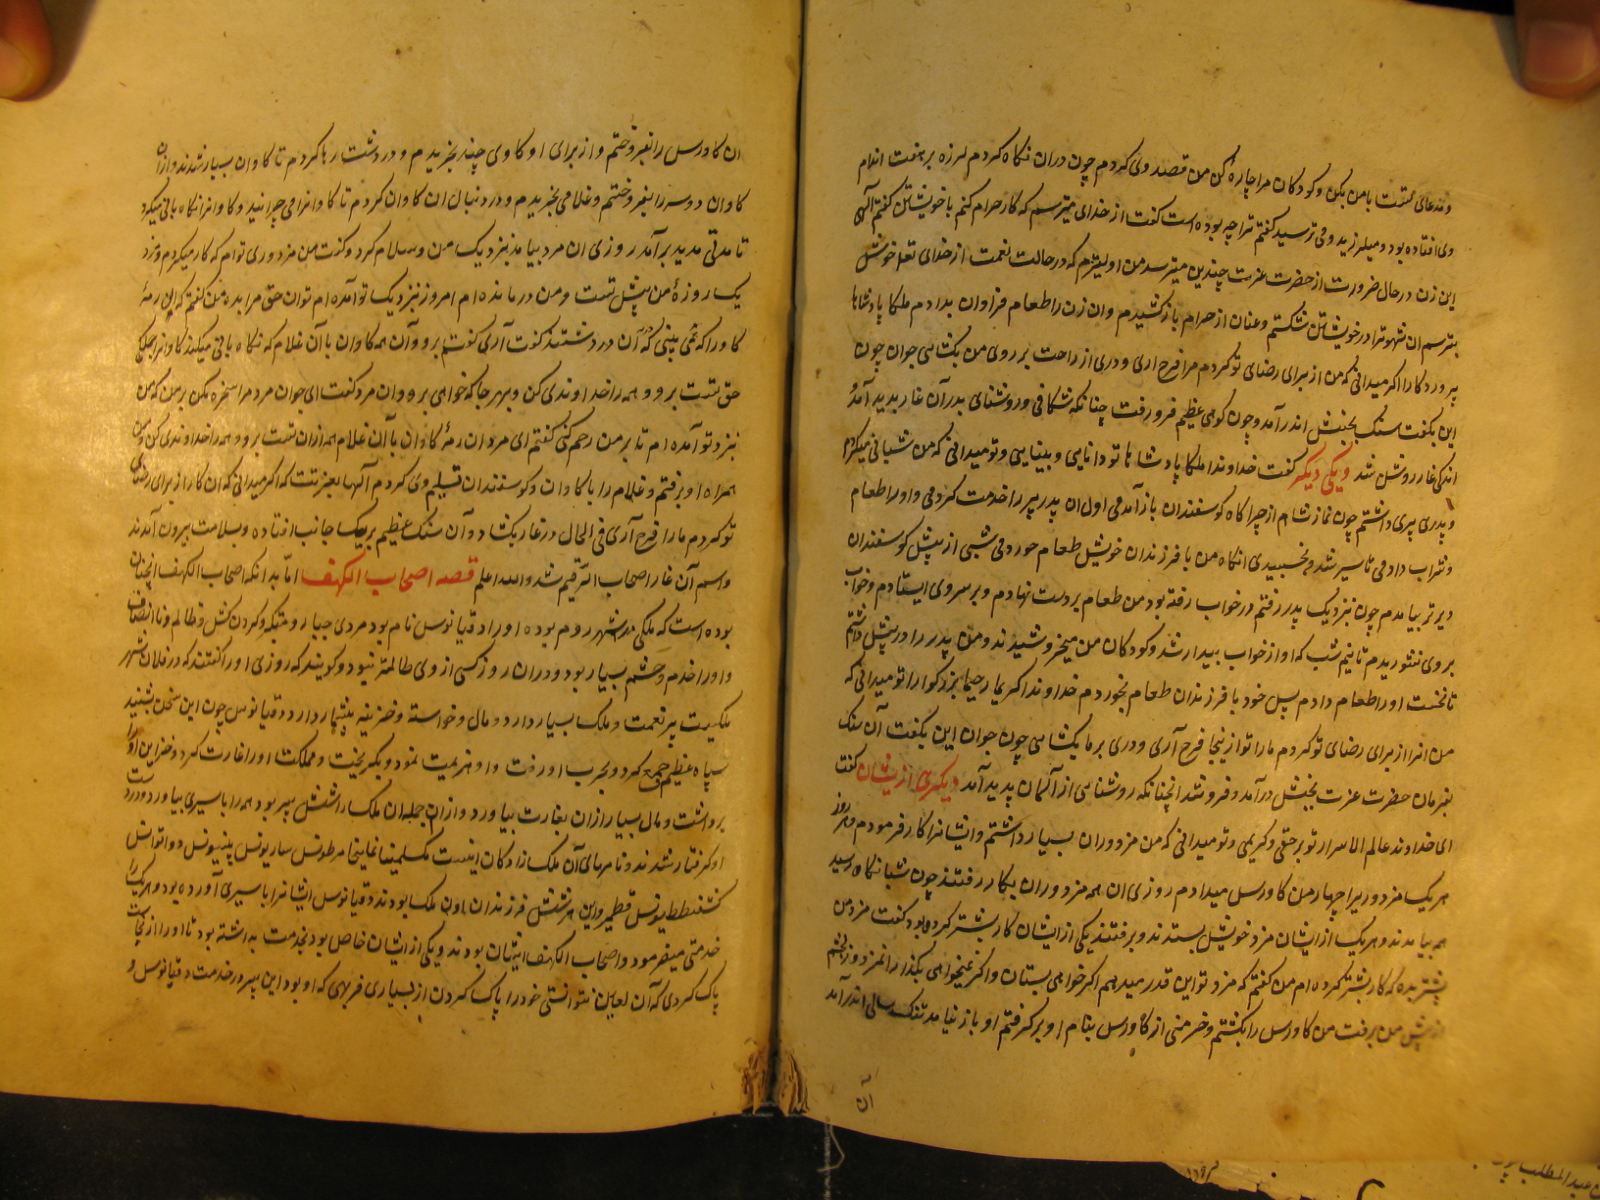 و مدعای تست با من بکن و کودکان مرا چارهٔ کن من قصد وی کردم چون در ان نکاه کردم لرزه بر هفت اندام
وی افتاده بود و میلرزید و می ترسید کفتم ترا چه بوده است کفت از خدای میترسم که کار حرام کنم با خویشتن کفتم آلهی
این زن در حال ضرورت از حضرت عزت چندین میترسد من اولیترم که در حالت نعمت از خدای تعالی خویش
بترسم ان شهوت را در خویشتن شکستم و عنان از حرام باز کشیدم و ان زن را طعام فراوان بدادم ملکا پادشاها
پروردکارا اکر میدانی که من از برای رضای تو کردم مرا فرح اری و دری از راحت بر روی من بکشایی جوان چون
این بکفت سنک بجنبش اندر آمد و چون کوهی عظیم فرو رفت چنانکه شکافی و روشنای بدر آن غار پدید آمد
اندکی غار روشن شد ویکی دیکر کفت خداوندا ملکا پادشاها تو دانایی و بینایی و تو میدانی که من شبانی میکردم
و پدری پیری داشتم چون نماز شام از چراکاه کوسفندان باز آمدمی اول ان پدر پیر را خدمت کردمی و او را طعام
و شراب دادمی تا سیر شدی بخسبیدی انکاه من با فرزندان خویش طعام خوردمی شبی از پیش کوسفندان
دیرتر بیامدم چون نزدیک پدر رفتم در خواب رفته بود من طعام بر دست نهادم و بر سر وی ایستادم و خواب
بر وی نشوریدم تا نیم شب که او از خواب بیدار شد و کودکان من میخروشیدند و من پدر را در پیش داشتم
تا نخست او را طعام دادم پس خود با فرزندان طعام بخوردم خداوندا کریما رحیما بزرکوارا تو میدانی که
من انرا از برای رضای تو کردم ما را تو ازینجا فرح آری و دری بر ما بکشایی چون جوان این بکفت آن سنک
بفرمان حضرت عزت بجنبش درآمد و فرو شد انچنانکه روشنایی از آسمان پدید آمد دیکری ازیشان کفت
ای خداوند عالم الاسرار تو برحقی و کریمی و تو میدانی که من مزدوران بسیار داشتم و ایشانرا کار فرمودم هر روز
هر یک مزدوریرا چهار من کاورس میدادم روزی ان همه مزدوران بکار رفتند چون شبانکاه رسید
همه بیامدند و هر یک از ایشان مزد خویش بستدند و برفتند یکی از ایشان کار بیشتر کرده بود کفت مزد من
بیشتر بده که کار بیشتر کرده ام من کفتم که مزد تو این قدر میدهم اکر خواهی بستان و اکر نمیخواهی بکذار انمزدور بخشم
از پیش من برفت من کاورس را بکشتم و خرمنی از کاورس بنام او برکرفتم او باز نیامد تنک سالی اندرآمد
آن
ان کاورس را بفروختم و از برای او کاوی چند بخریدم و در دشت رها کردم تا کاوان بسیار شدند و از ان
کاوان دو سر را بفروختم و غلامی بخریدم و در دنبال ان کاوان کردم تا کاوانرا می چرانید و کاوانرا نکاه بانی میکرد
تا مدتی مدید برآمد روزی ان مرد بیامد بنزدیک من و سلام کرد و کفت من مزدوری توام که کار میکردم و مزد
یک روزهٔ من پیش تست و من درمانده ام امروز بنزدیک تو آمده ام تو ان حق مرا بده من کفتم که این رمهٔ
کاو را که می بینی که در آن دشتند کفت آری کفتم برو و آن همه کاوان با آن غلام که نکاه بانی میکند کاوانرا جملکی
حق تست برو و همه را خداوندی کن و بهر جا که خواهی برو و ان مرد کفت ای جوان مرد مرا سخره مکن بر من که من
بنزد تو آمده ام تا بر من رحم کنی کفتم ای مرد ان رمهٔ کاوان با آن غلام همه از ان تست برو و همه را خداوندی کن و من
همراه او برفتم و غلام را با کاوان و کوسفندان تسلیم وی کردم آلها بعزتت که اکر میدانی که ان کار از برای رضای
تو کردم ما را فرح آری فی الحال در غار بکشاد و آن سنک عظیم بر یک جانب افتاده و بسلامت بیرون آمدند
و اسم آن غار اصحاب الرقیم شد والله اعلم قصه اصحاب الکهف اما بدانکه اصحاب الکهف انچنان
بوده است که ملکی در شهر روم بوده او را دقیانوس نام بود مردی جبار و متکبر و کردن کش و ظالم و نا انصاف
و او را خدم و حشم بسیار بود و در ان روز کسی از وی ظالمتر نبود و کویند که روزی او را کفتند که در فلان شهر
ملکیست پر نعمت و ملک بسیار دارد و مال و خواسته و خزینه بیشمار دارد دقیانوس چون این سخن بشنید
سپاه عظیم جمع کرد و بحرب او رفت و او هزیمت نمود و بکریخت و مملکت او را غارت کرد و خزاین او را
برداشت و مال بسیار از ان بغارت بیاورد و از ان جمله ان ملک را شش پسر بود همه را باسیری بیاورد و در دست
او کرفتار شدند و نامهای آن ملک زادکان اینست مکسلمینا یملیخا مرطونس ساریونس بینیونس دوانوانس
کشفیطط یونس قطمیر و این هر شش فرزندان اون ملک بودند دقیانوس ایشانرا باسیری آورده بود و هر یک را
خدمتی میفرمود و اصحاب الکهف ایشان بودند و یکی از ایشان خاص بود بخدمت بداشته بود تا او را از نجاست
پاک کردی که آن لعین نتوانستی خود را پاک کردن از بسیاری فربهی که او بود این پسر در خدمت دقیانوس و